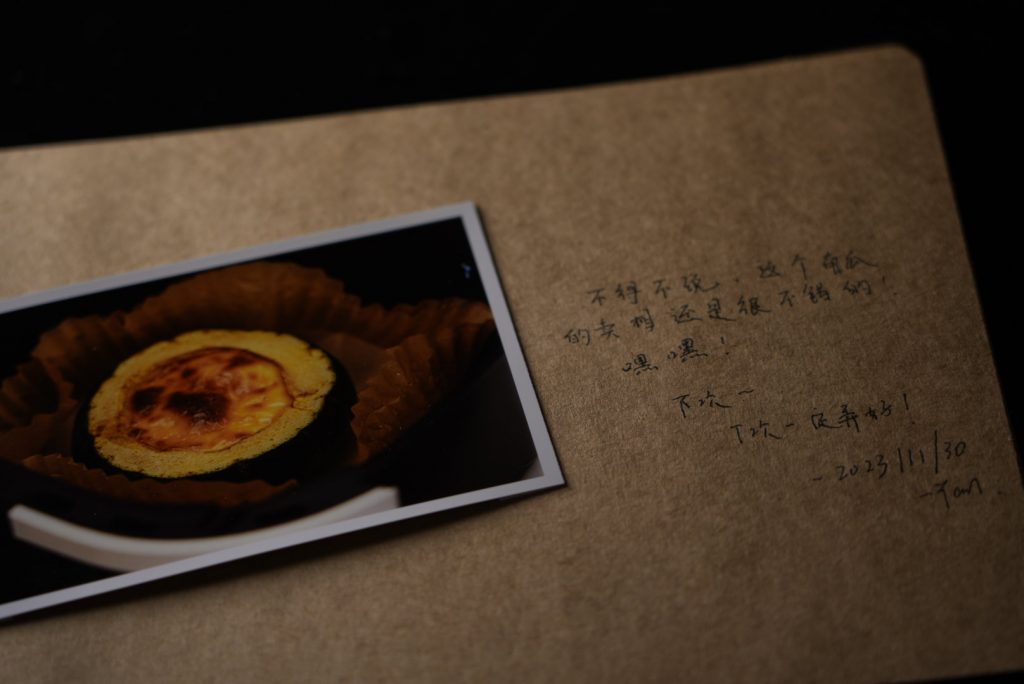 不得不说，这个南瓜
的卖相还是很不错的！
嘿嘿！
下次~
下次一定弄好！
-2023/11/30